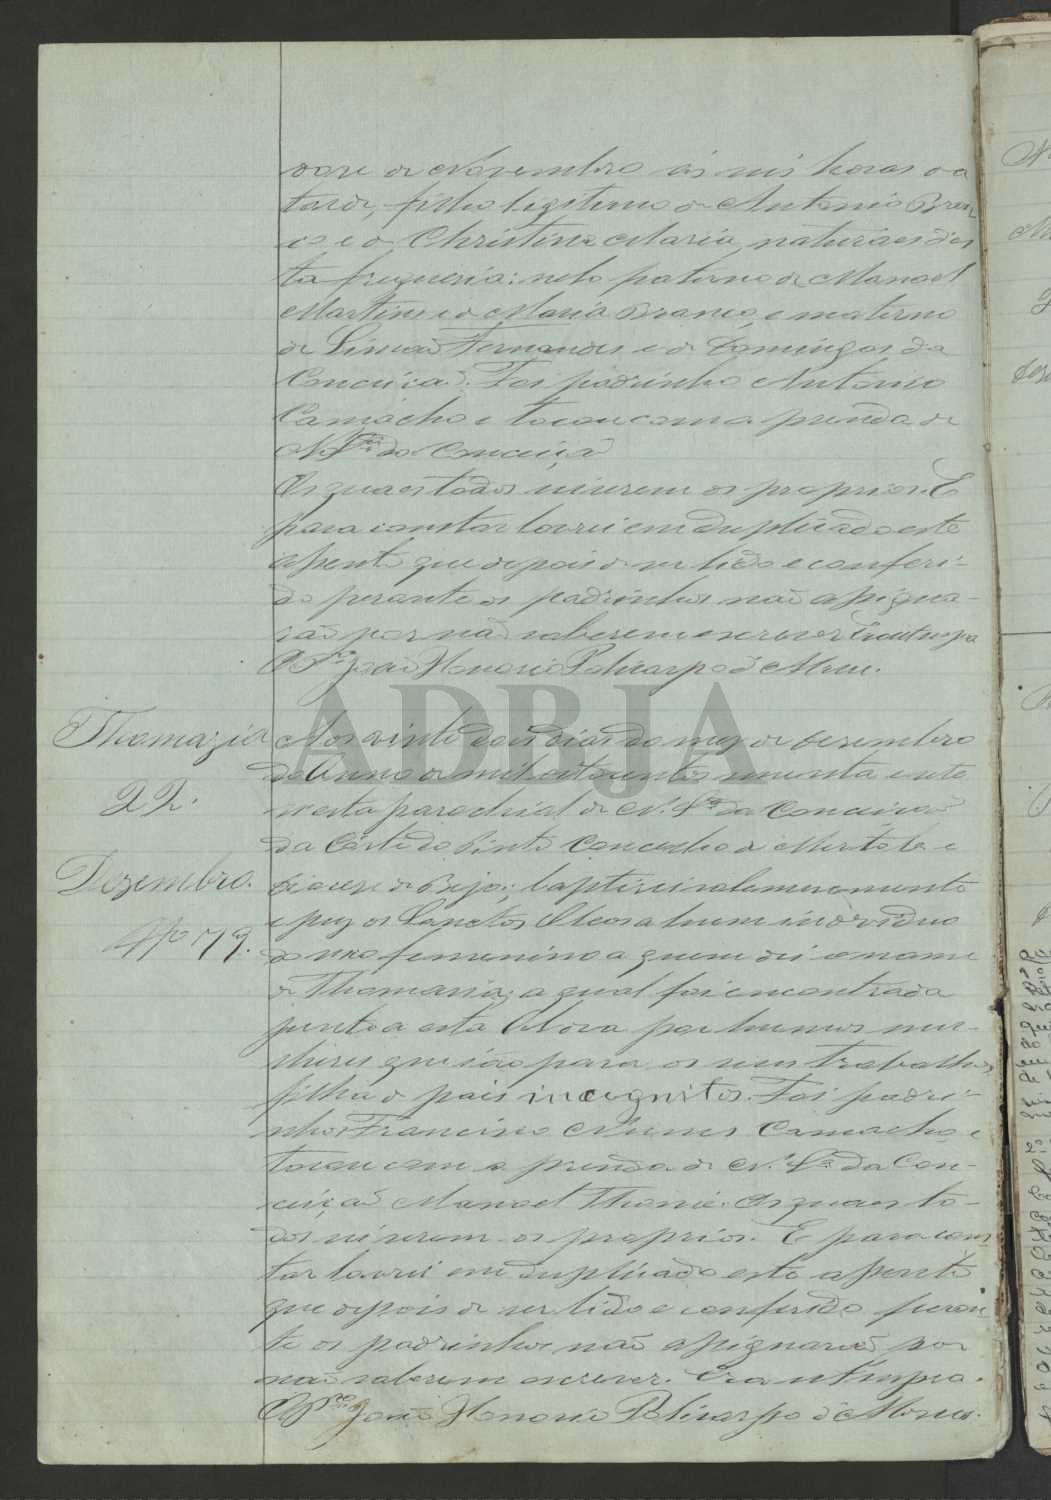 doze de Novembro ás seis horas da
tarde, filho legitimo de Antonio Bran
co e de Christina Maria, naturaes des
ta freguesia: neto paterno de Manoel
Martins e de Maria Branco, e materno
de Simão Fernandes e de Domingas da
Conceição. Foi padrinho Antonio
Camacho e tocou com a prenda de
N. Srª da Conceição
Os quaes todos sei serem os proprios. E
para constar lavrei em duplicado este
assento que depois de ser lido e conferi-
do perante os padrinhos não assigna-
rão por não saberem escrever Era ut supra
O Pr. João Honorio Policarpo d'Abreu.
Thomazia
22.
Dezembro.
Nº 79.
Aos vinte dois dias do mez de Dezembro
do Anno de mil oitocentos noventa e sete
nesta parochial de N. Sª da Conceição
da Côrte do Pinto Concelho de Mertola e
Diocese de Beja; baptizei solemnemente
e puz os Sanctos Oleos a hum individuo
do sexo femenino a quem dei o nome
de Thomazia; a qual foi encontrada
junto a esta Aldeia por humas mu-
lheres que ião para os seus trabalhos,
filha de pais incognitos. Foi padri-
nho Francisco Nunes Camacho e
tocou com a prenda de N. Sª da Con-
ceição Manoel Thomé. Os quaes to-
dos sei serem os proprios. E para cons
tar lavrei em duplicado este assento
que depois de ser lido e conferido peran
te os padrinhos não assignarão por
não saberem escrever. Era ut supra.
O Pr. João Honorio Policarpo d'Abreu.
ADBJA